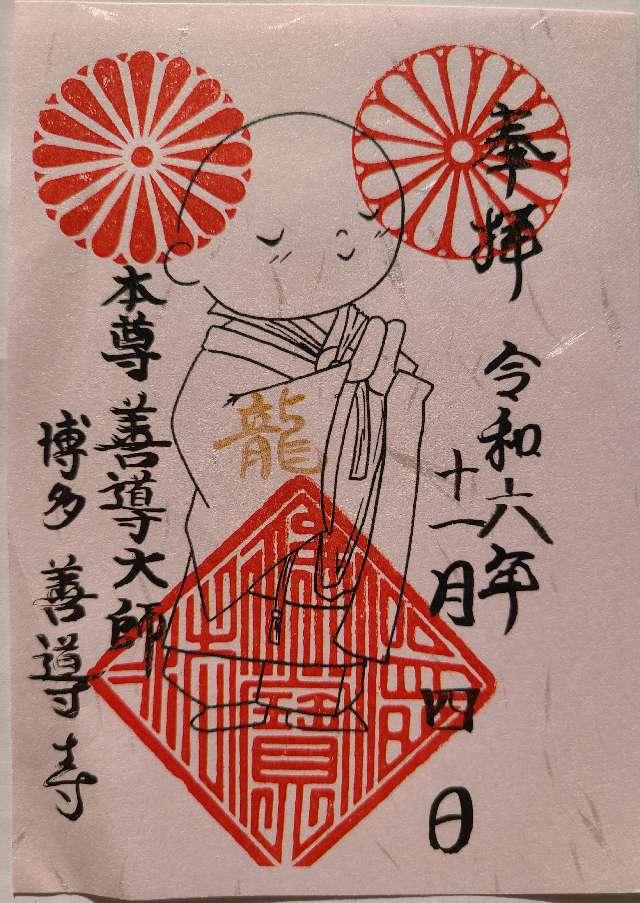 奉拝
令和六年
十一月四日
龍
本尊 善導大師
博多 善導寺